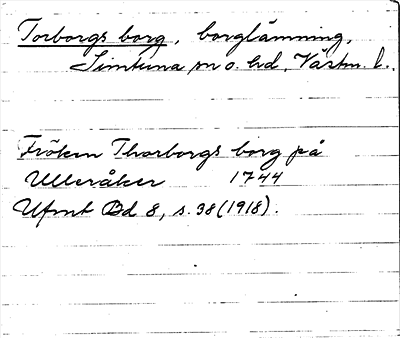 Torborgs borg, borglämning,
Simtuna sn o. hd, Västm. l.
Fröken Thorborgs borg på
Ulleråker 1744
Ufmt Bd 8, s. 38 (1918).